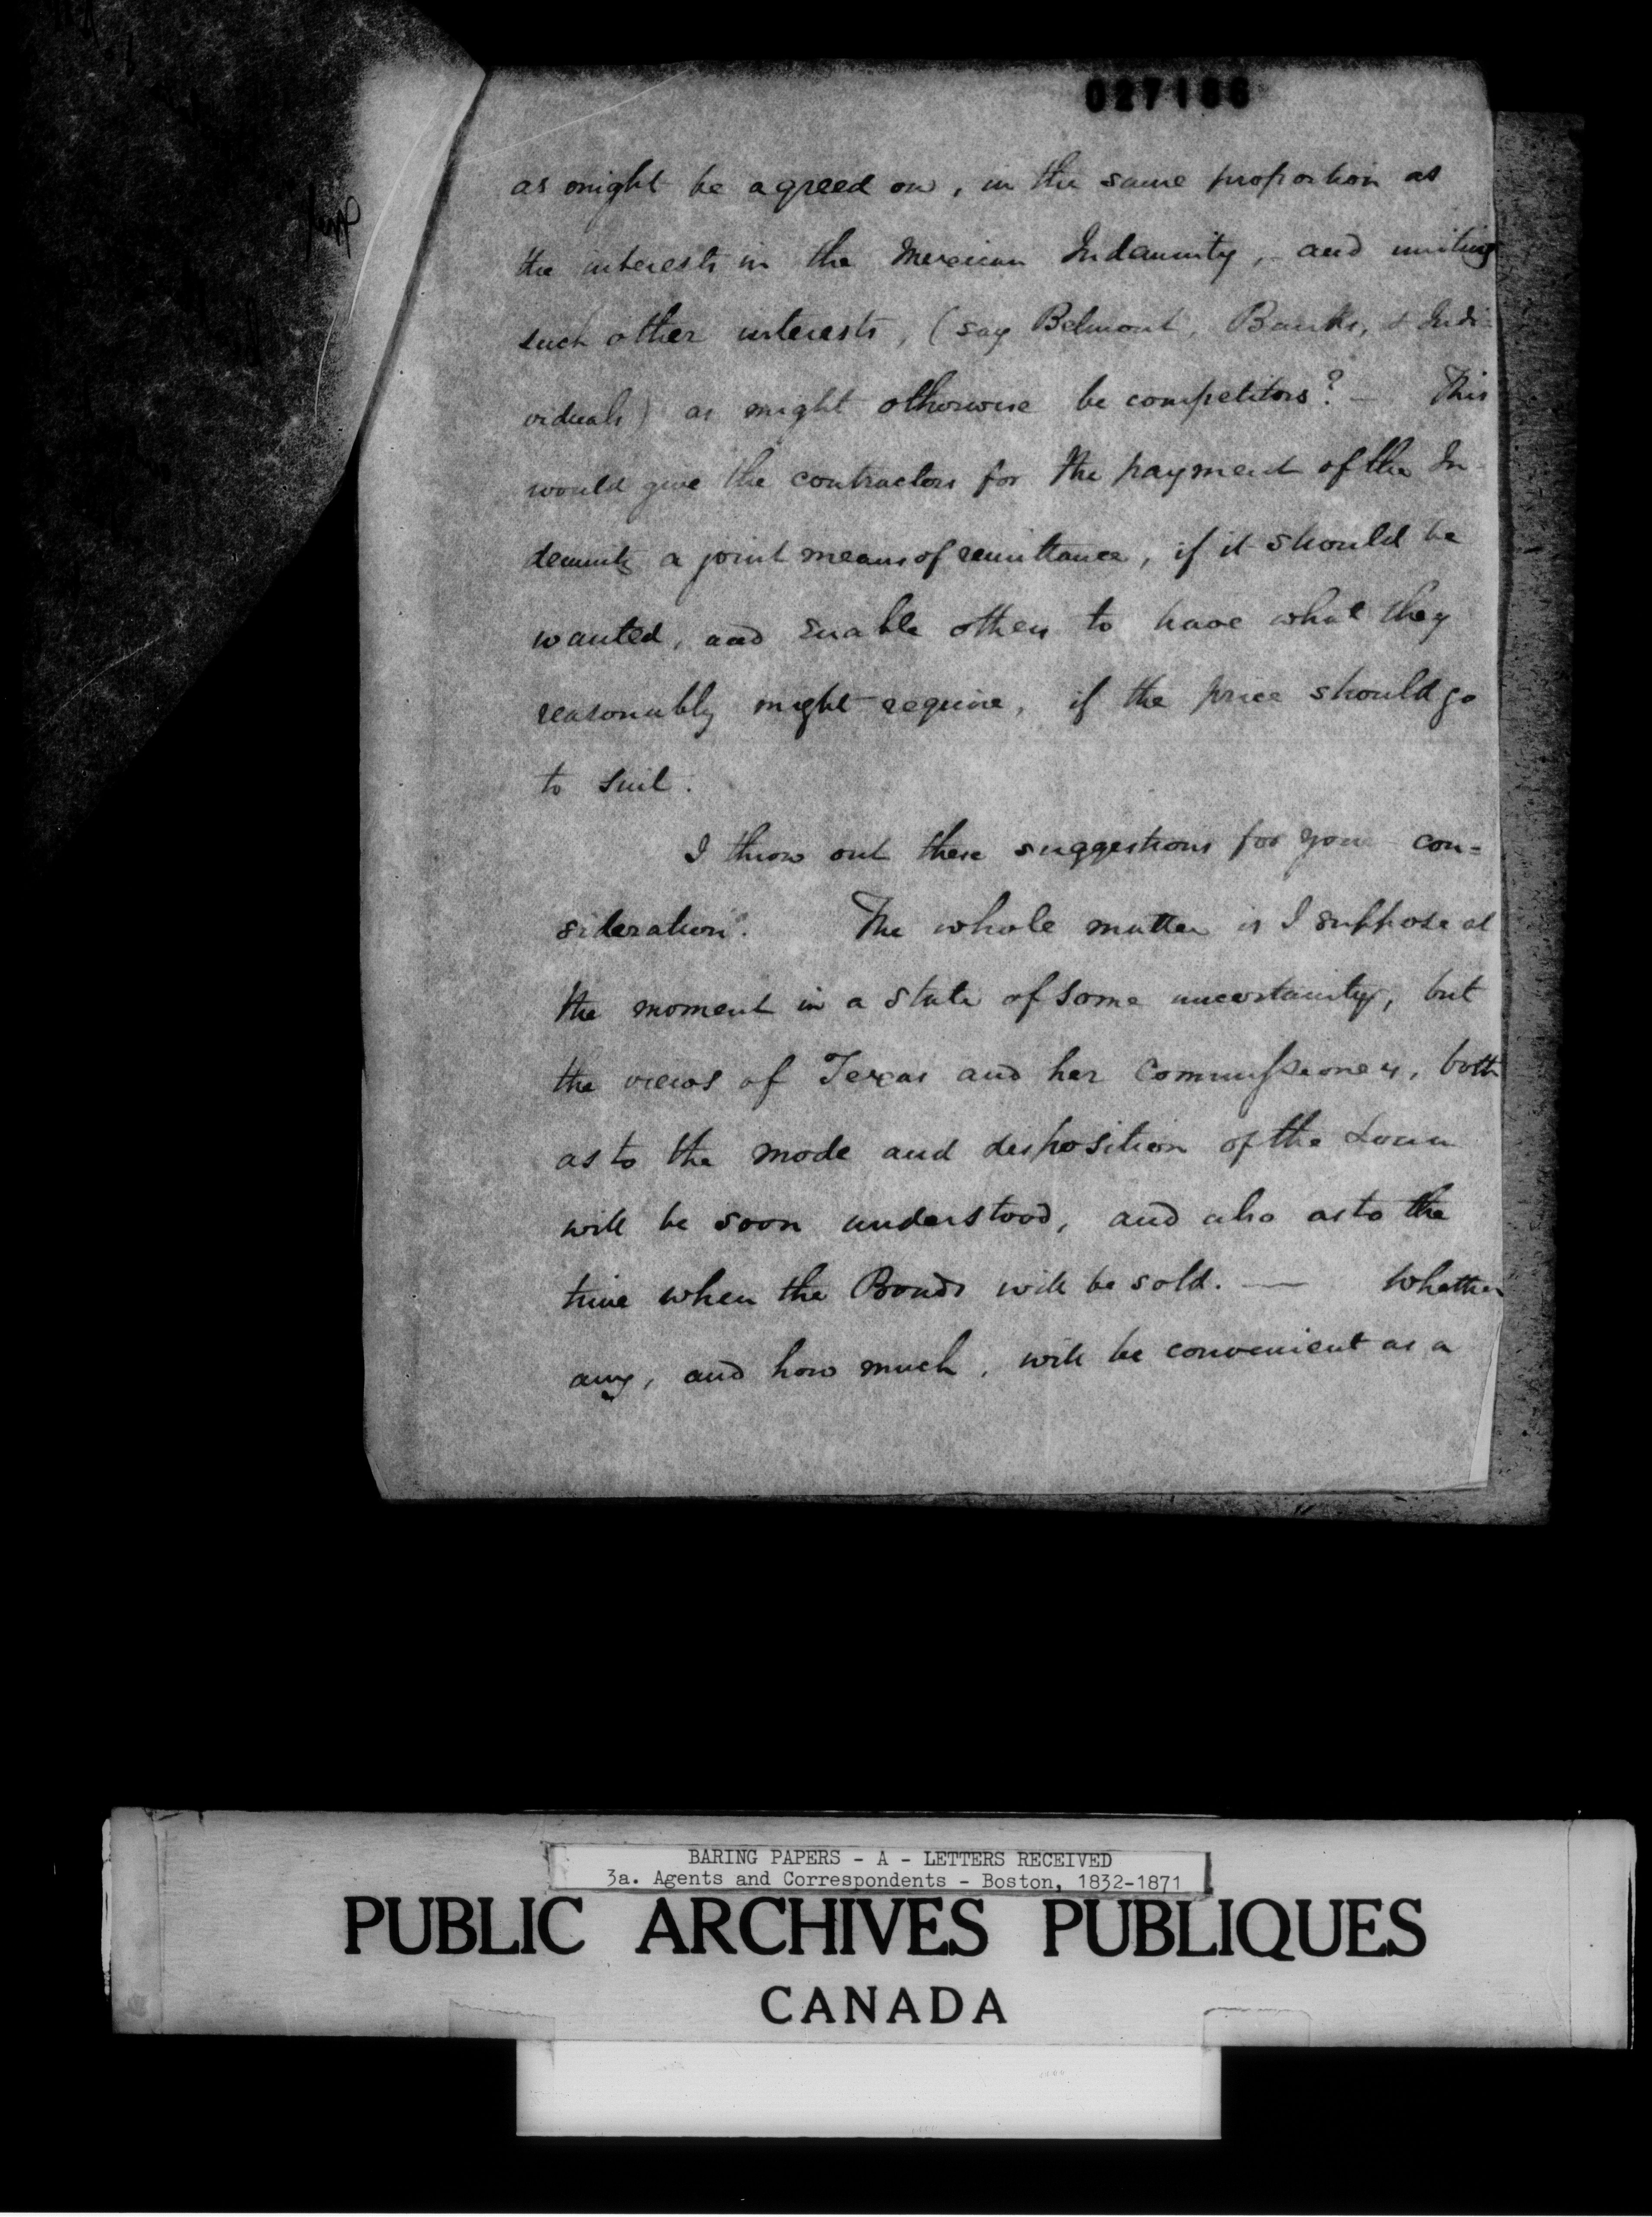 027186
as might be agreed on, in the same proportion as
the interests in the Mexican Indemnity, and uniting
such other interests, (say Belmont, Banks, & Indi-
viduals) as might otherwise be competitors? – This
would give the contractors for the payment of the In-
demnity a joint means of remittance, if it should be
wanted, and enable others to have what they
reasonably might require, if the price should go
to suit.
I throw out these suggestions for your con=
sideration. The whole matter is I suppose at
the moment in a state of some uncertainty, but
the views of Texas and her Commissioners, both
as to the mode and desposition of the Loan
will be soon understood, and also as to the
time when the Bonds will be sold. — Whether
any, and how much, will be convenient as a
BARING PAPERS - A - LETTERS RECEIVED
3a. Agents and Correspondents - Boston, 1832-1871
PUBLIC ARCHIVES PUBLIQUES
CANADA